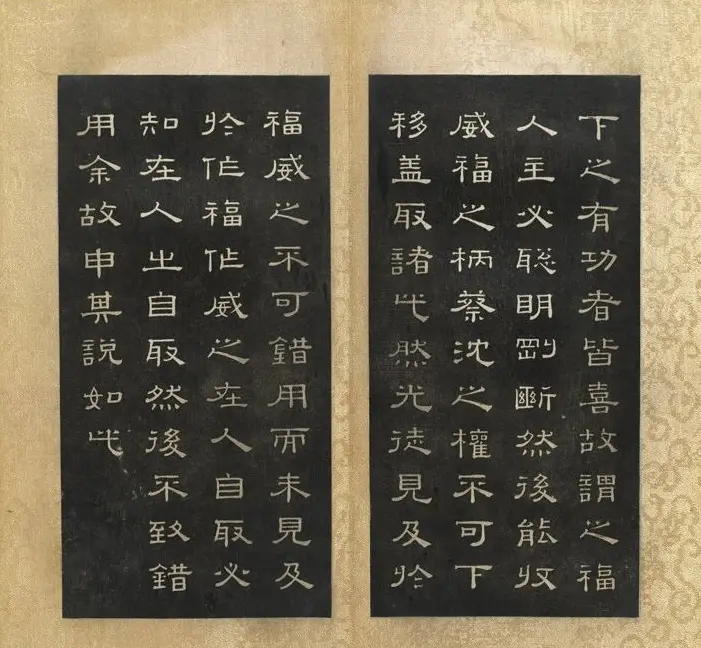 下之有功者皆喜故謂之福
人主必聡明剛斷然後能收
威福之柄蔡沈之權不可下
移盖取諸此然光徒見及於
福威之不可錯用而未見及
於作福作威之在人自取必
知在人之自取然後不致錯
用余故申其說如此